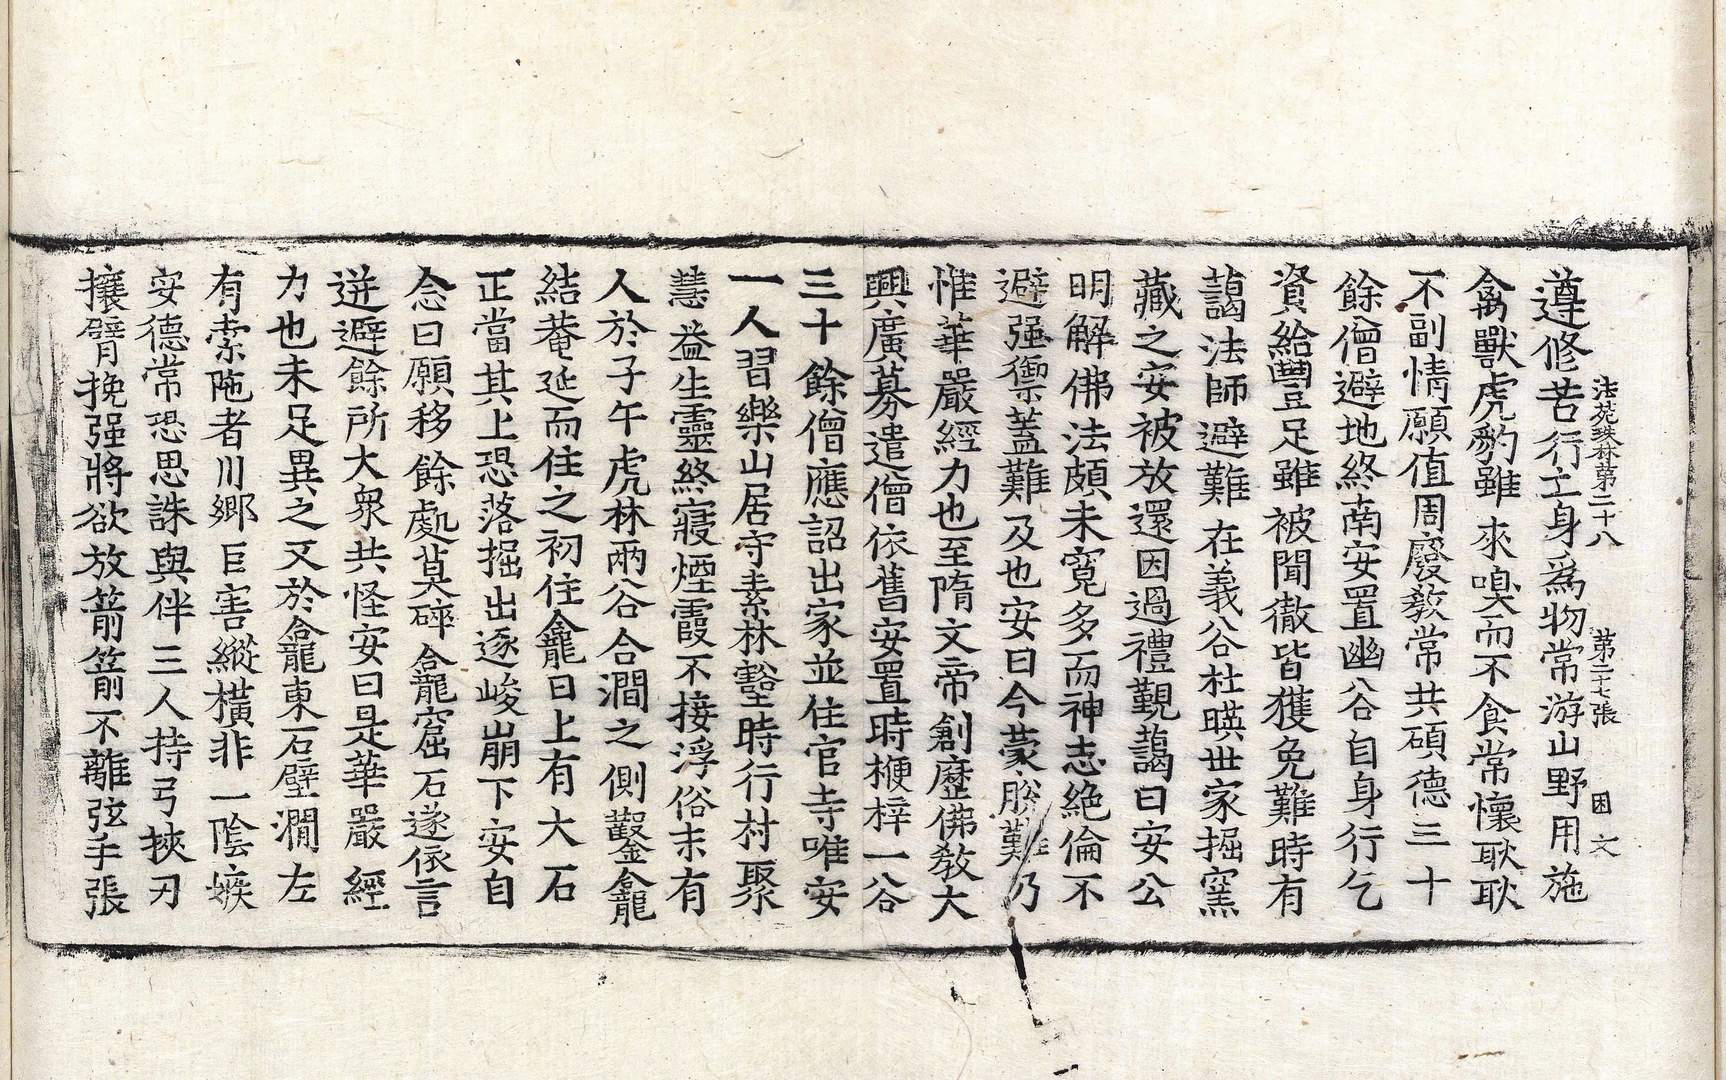 法苑珠林第二十八 第二十七張 因 文
遵修苦行立身爲物常游山野用施
禽獸虎豹雖來嗅而不食常懷耿耿
不副情願值周廢敎常共碩德三十
餘僧避地終南安置幽谷自身行乞
資給豐足雖被聞徹皆獲免難時有
藹法師避難在義谷杜暎世家掘窯
藏之安被放還因過禮覲藹曰安公
明解佛法頗未寬多而神志絶倫不
避强禦蓋難及也安曰今蒙脫難乃
惟華嚴經力也至隋文帝創歷佛敎大
興廣募遣僧依舊安置時梗梓一谷
三十餘僧應詔出家並住官寺唯安
一人習樂山居守素林壑時行村聚
慧益生靈終寢煙霞不接浮俗末有
人於子午虎林兩谷合澗之側鑿龕
結菴延而住之初住龕日上有大石
正當其上恐落掘出逐峻崩下安自
念曰願移餘處莫碎龕窟石遂依言
迸避餘所大衆共怪安曰是華嚴經
力也未足異之又於龕東石壁澗左
有索陁者川鄉巨害縱橫非一陰嫉
安德常恐思誅與伴三人持弓挾刃
攘臂挽强將欲放箭箭不離弦手張